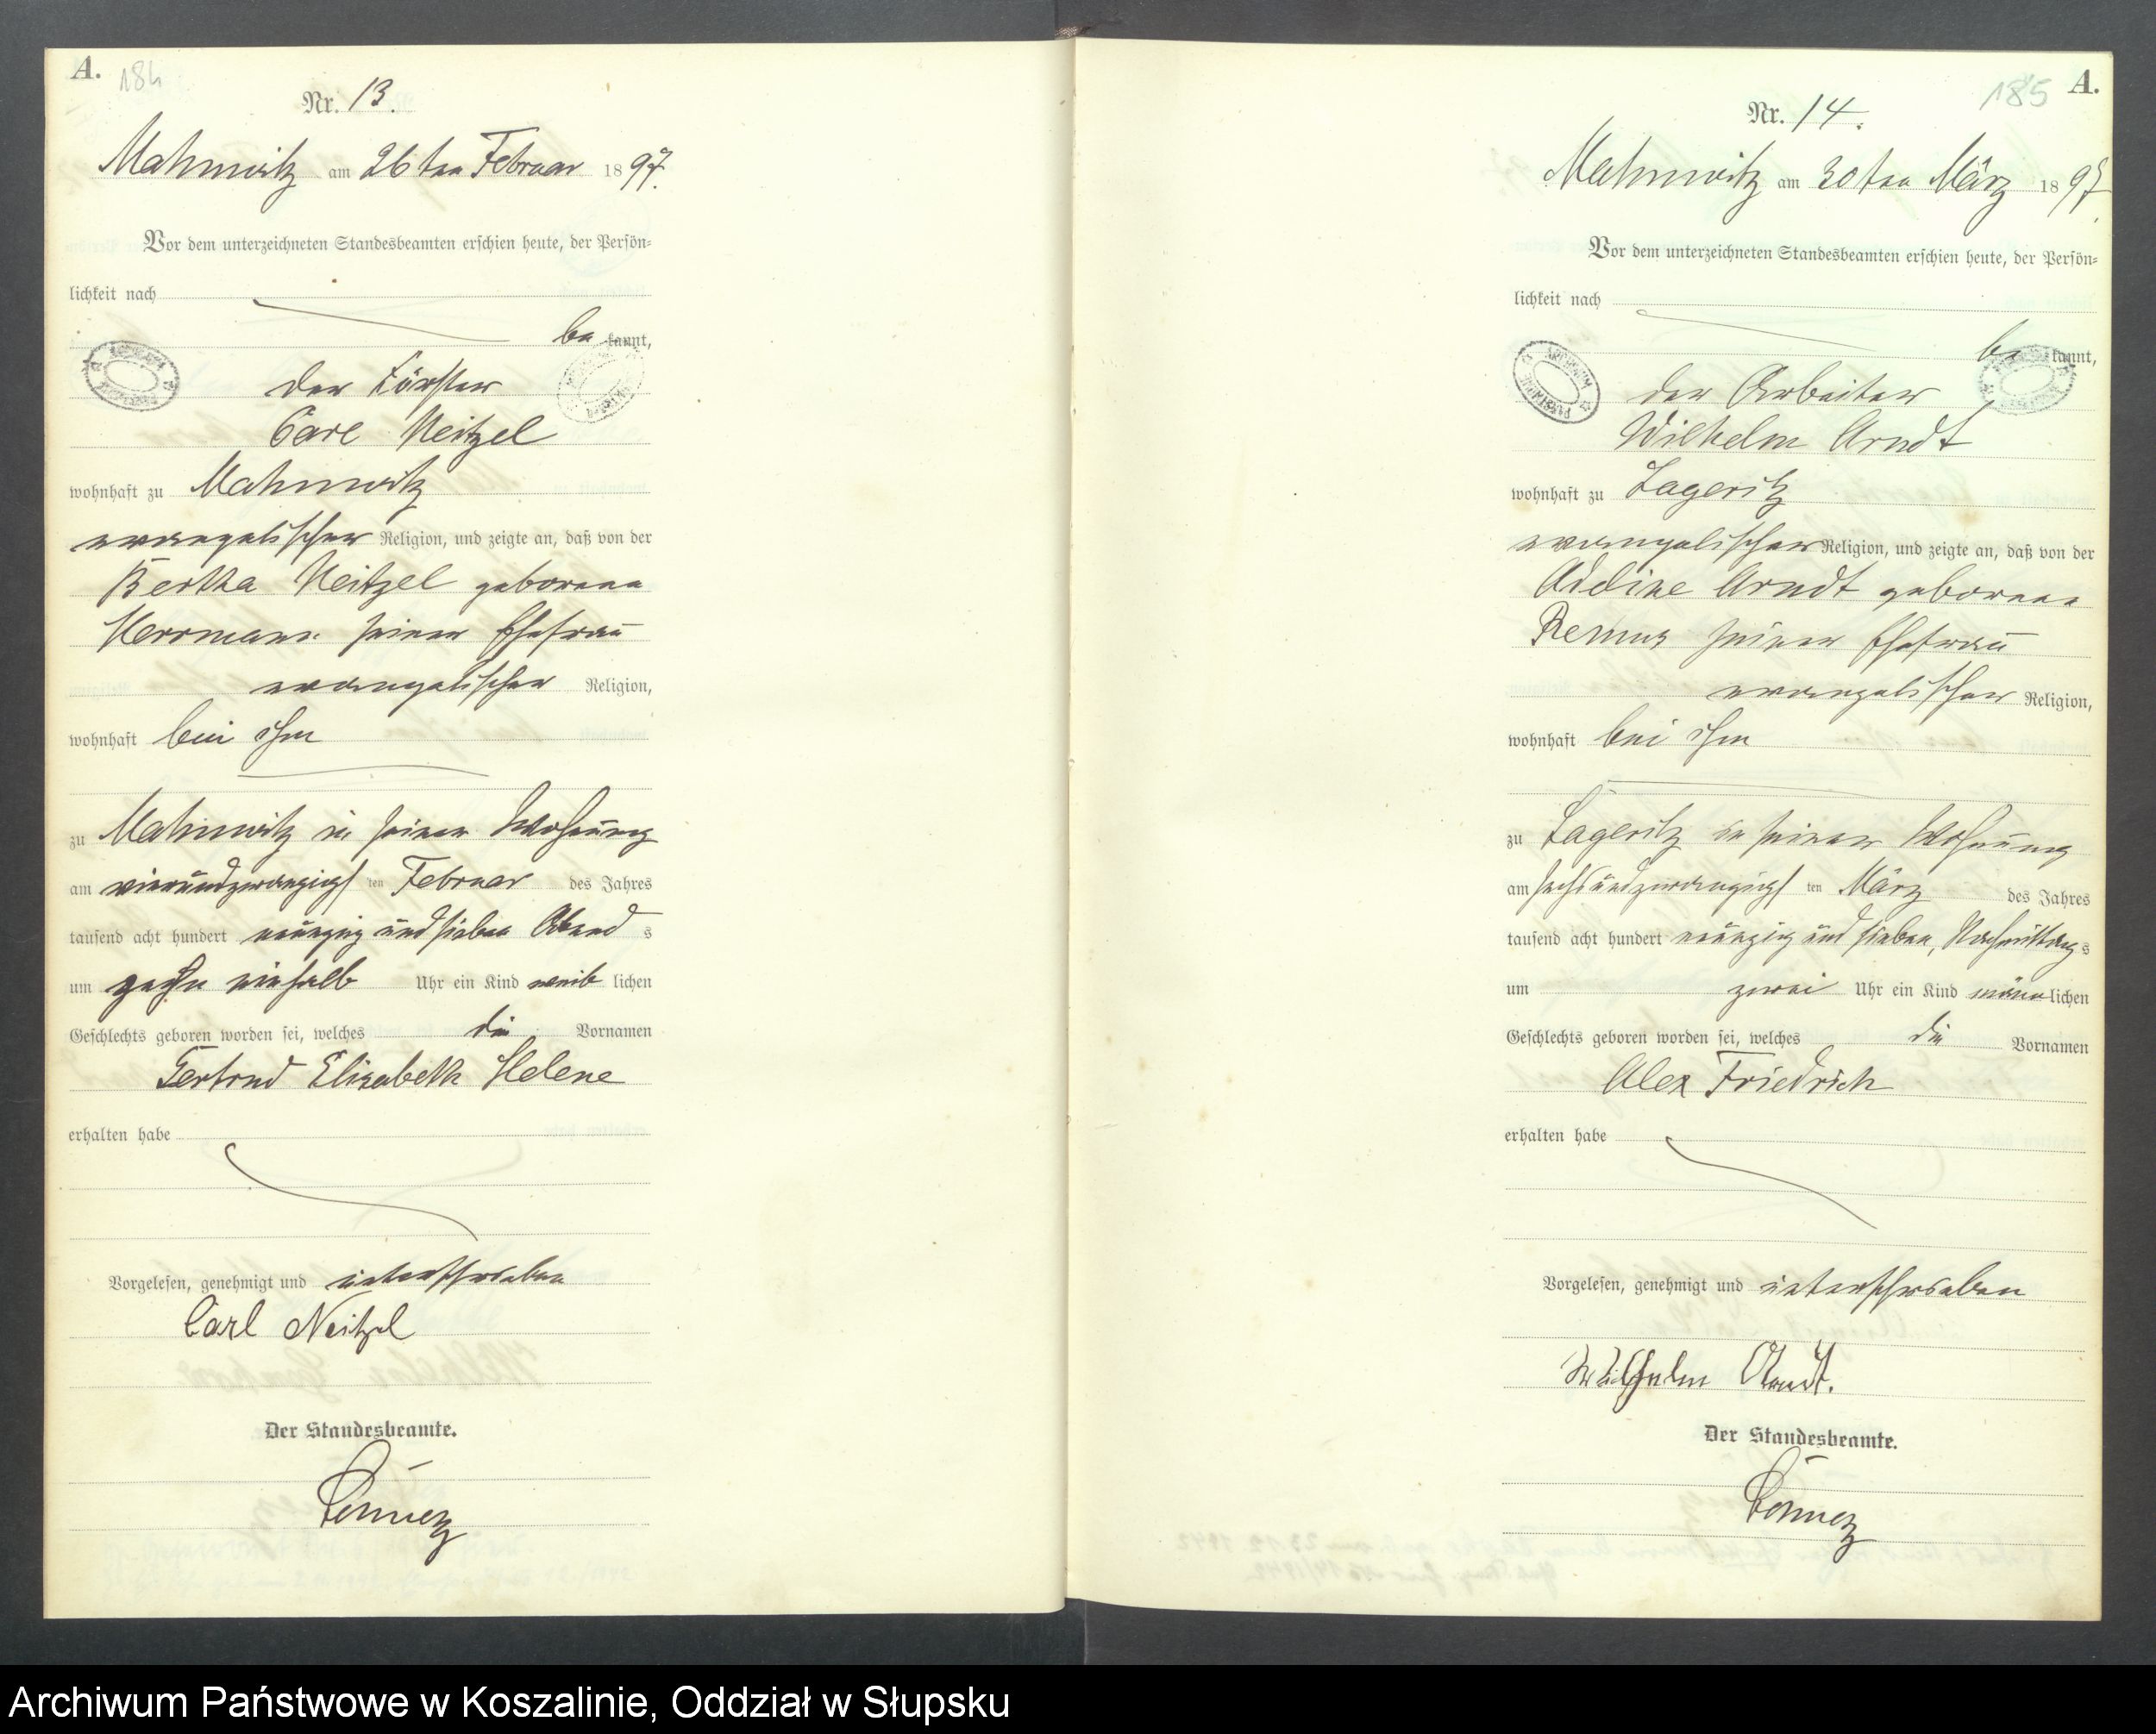 A.
184
Nr. 13.
Mahnwitz am 26ten Februar 1897.
Vor dem unterzeichneten Standesbeamten erschien heute, der Persön=
lichkeit nach
be kannt,
der Förster
Carl Neitzel
wohnhaft zu Mahnwitz
evangelischer Religion, und zeigte an, daß von der
Bertha Neitzel geborene
Herrmann seiner Ehefrau
evangelischer Religion,
wohnhaft bei ihm
zu Mahnwitz in seiner Wohnung
am vierundzwanzigsten Februar des Jahres
tausend acht hundert neunzig und sieben Abends
um zehn einhalb Uhr ein Kind weiblichen
Geschlechts geboren worden sei, welches die Vornamen
Gertrud Elisabeth Helene
erhalten habe
Vorgelesen, genehmigt und unterschrieben
Carl Neitzel
Der Standesbeamte.
185
A.
Nr. 14.
Mahnwitz am 30ten März 1897.
Vor dem unterzeichneten Standesbeamten erschien heute, der Persön=
lichkeit nach
be kannt,
der Arbeiter
Wilhelm Arndt
wohnhaft zu Zageritz
evangelischer Religion, und zeigte an, daß von der
Adeline Arndt geborene
Remus seiner Ehefrau
evangelischer Religion,
wohnhaft bei ihm
zu Zageritz in seiner Wohnung
am sechsundzwanzigsten März des Jahres
tausend acht hundert neunzig und sieben, Nachmittags
um zwei Uhr ein Kind männlichen
Geschlechts geboren worden sei, welches die Vornamen
Alex Friedrich
erhalten habe
Vorgelesen, genehmigt und unterschrieben
Wilhelm Arndt.
Der Standesbeamte.
Archiwum Państwowe w Koszalinie, Oddział w Słupsku